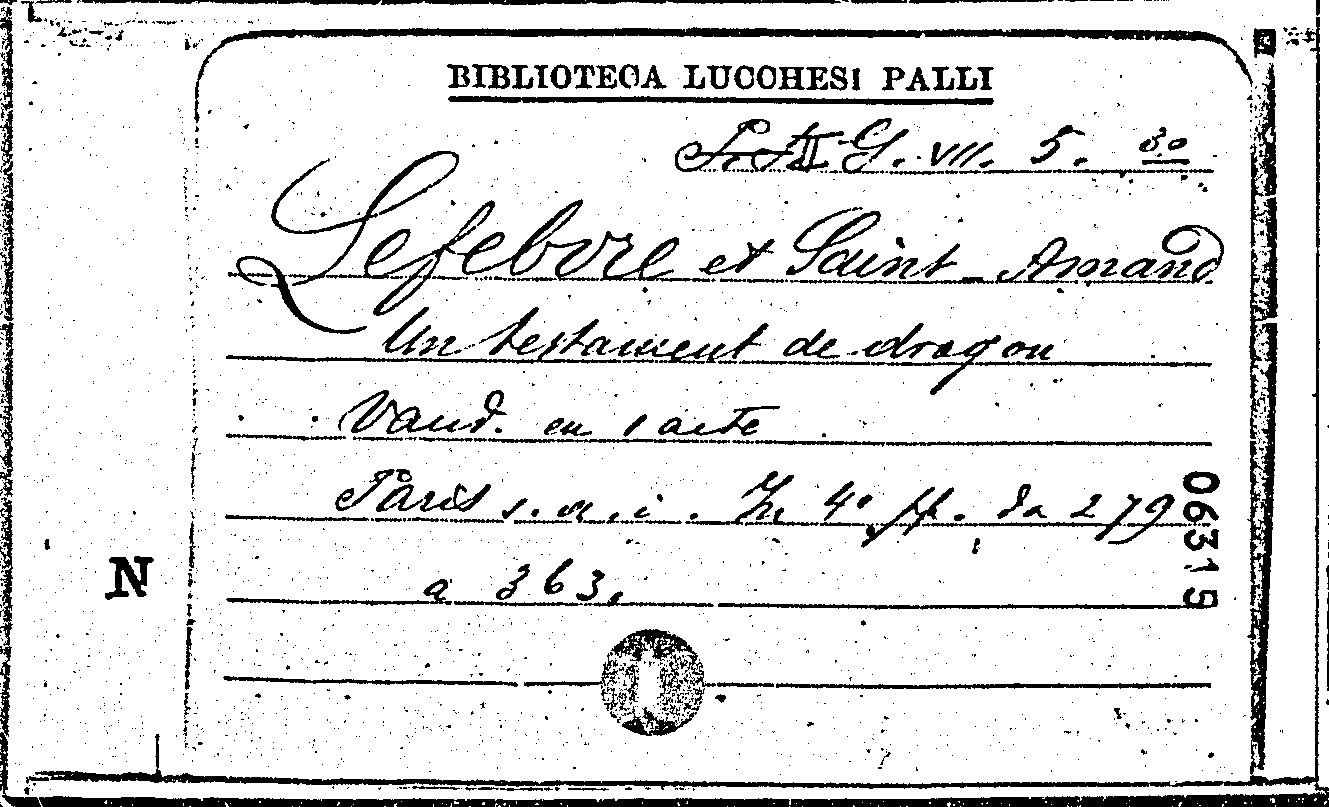 BIBLIOTECA LUCCHESI PALLI
G. VII. 5. 30
Lefebvre et Saint-Amand
Un testament de dragon
Vaud. en 1 acte
Paris s. a. i. In 4° pp. da 279
a 363.
N
06315